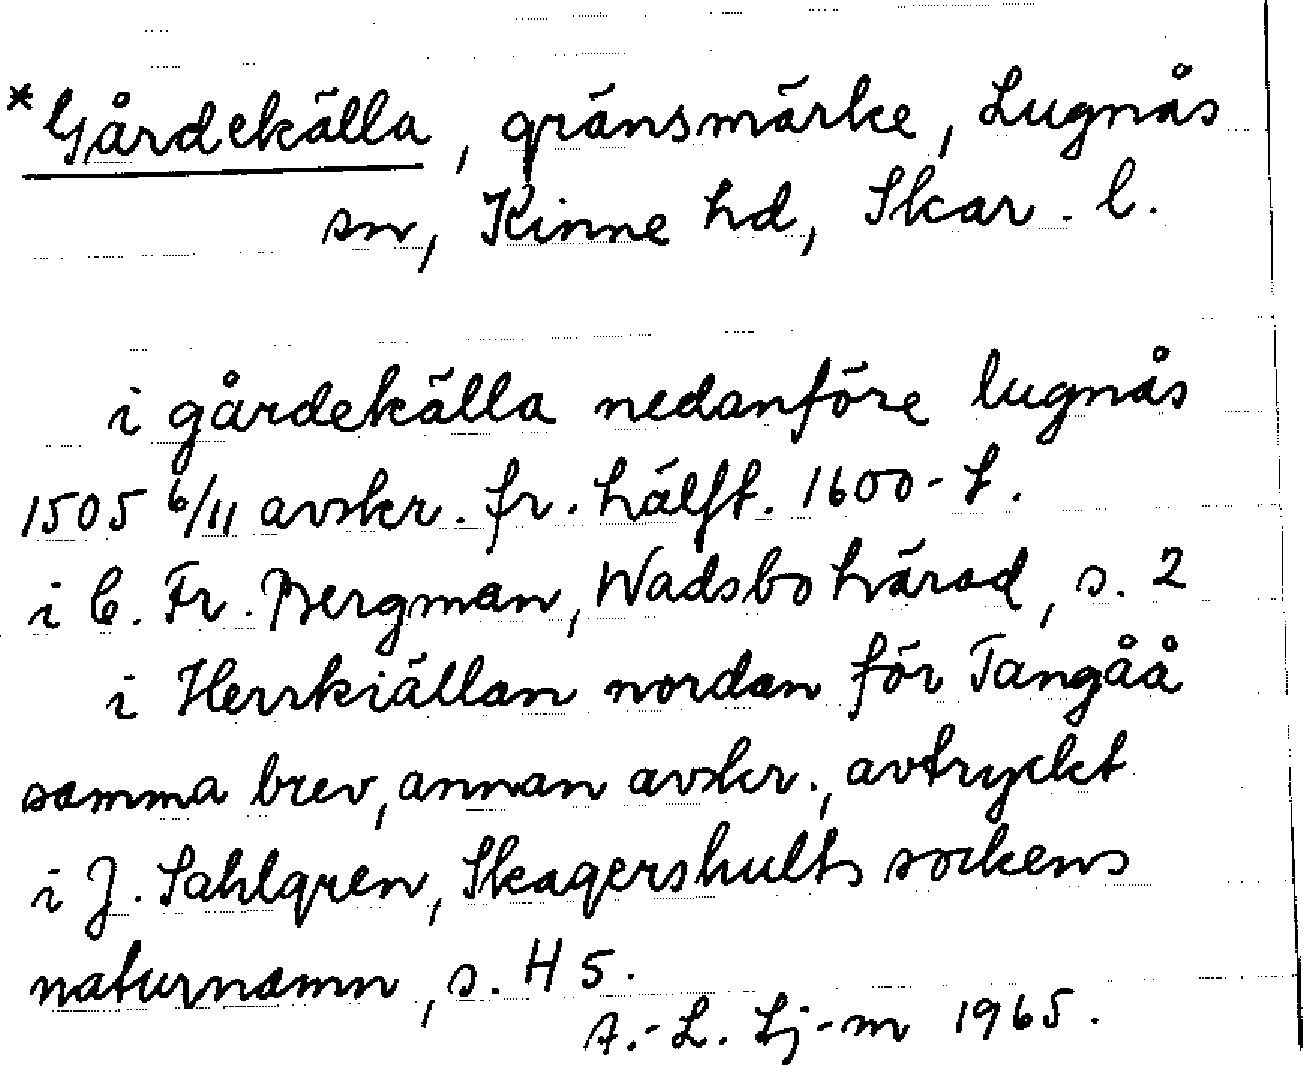 *Gårdekälla, gränsmärke, Lugnås
sn, Kinne hd, Skar. l.
i gårdekälla nedanföre lugnås
1505 6/11 avskr. fr. hälft. 1600-t.
i C. Fr. Bergman, Wadsbo härad, s. 2
i Herrkiällan nordan för Tangåå
samma brev, annan avskr., avtryckt
i J. Sahlgren, Skagershults sockens
naturnamn, s. H 5.
A.-L. Lj-m 1965.